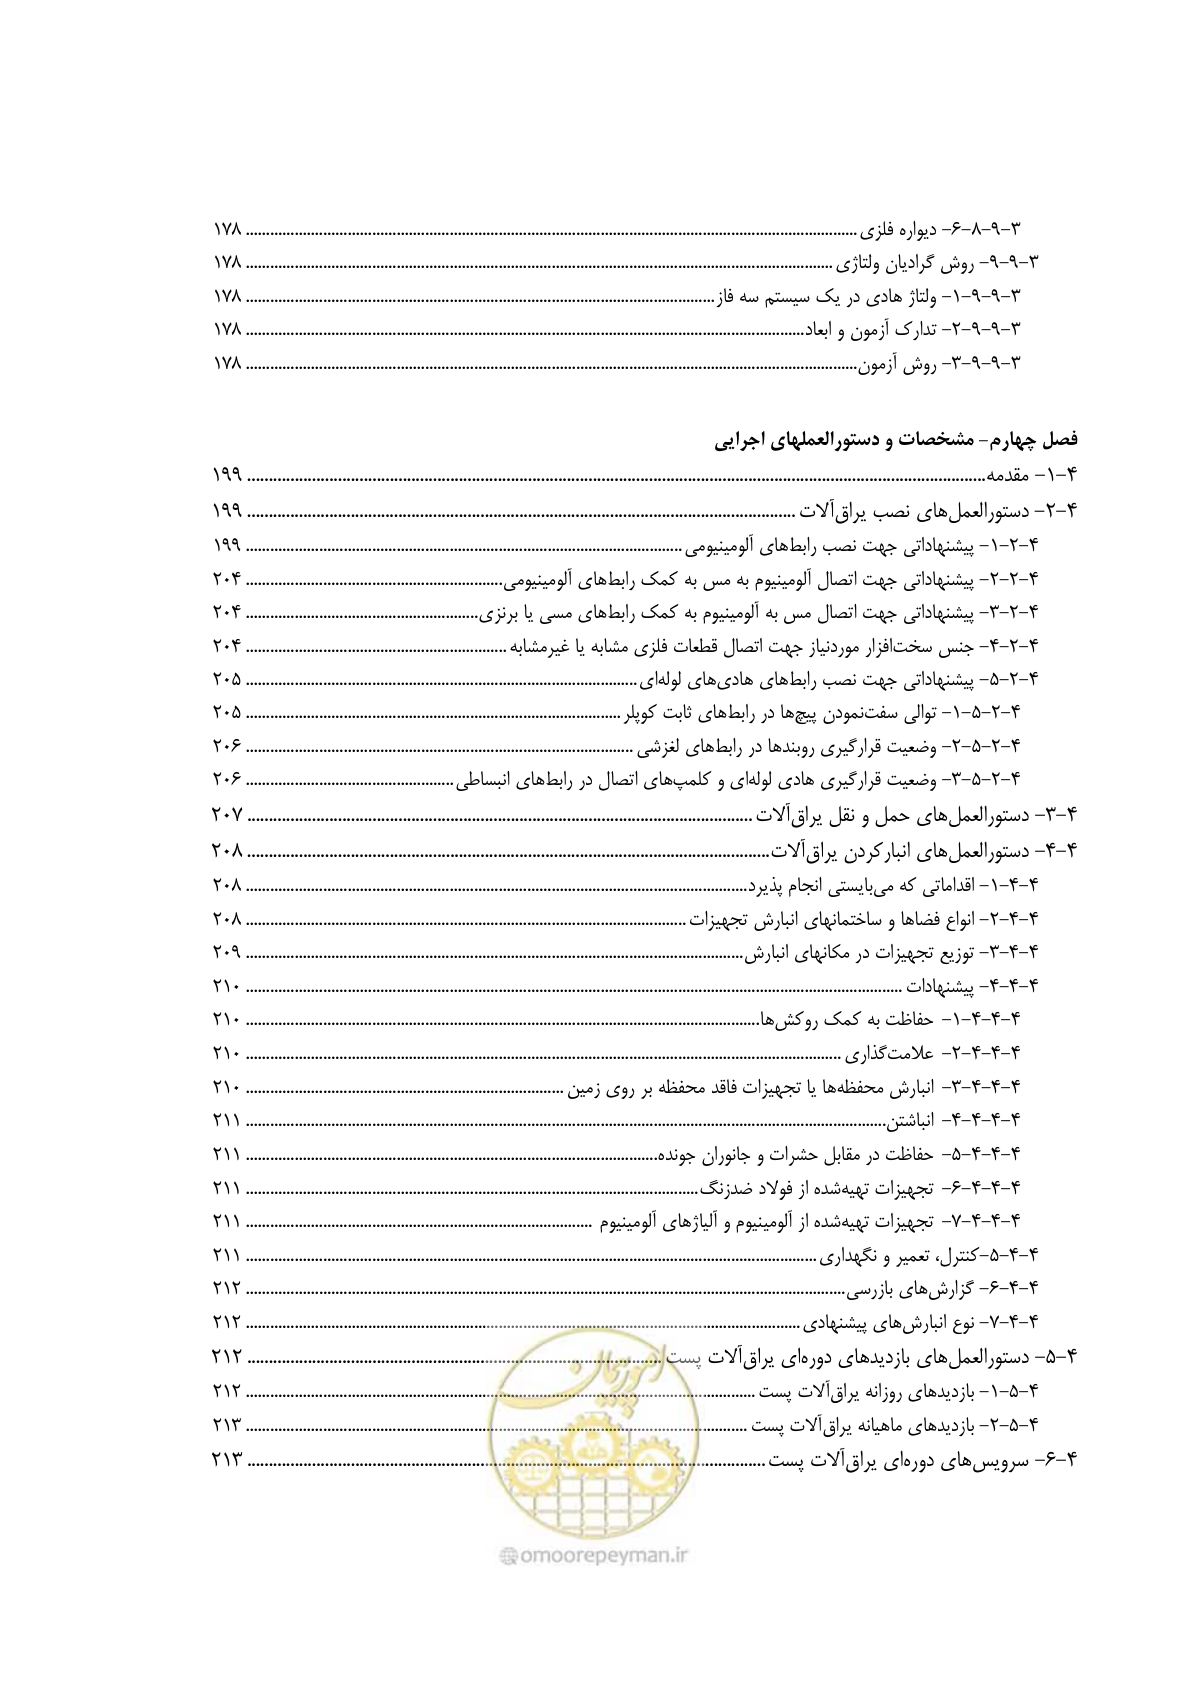 ۳-۹-۸-۶- دیواره فلزی ........ ۱۷۸
۳-۹-۹- روش گرادیان ولتاژی ........ ۱۷۸
۳-۹-۹-۱- ولتاژ هادی در یک سیستم سه فاز ........ ۱۷۸
۳-۹-۹-۲- تدارک آزمون و ابعاد ........ ۱۷۸
۳-۹-۹-۳- روش آزمون ........ ۱۷۸
فصل چهارم- مشخصات و دستورالعملهای اجرایی
۴-۱- مقدمه ........ ۱۹۹
۴-۲- دستورالعمل‌های نصب یراق‌آلات ........ ۱۹۹
۴-۲-۱- پیشنهاداتی جهت نصب رابط‌های آلومینیومی ........ ۱۹۹
۴-۲-۲- پیشنهاداتی جهت اتصال آلومینیوم به مس به کمک رابط‌های آلومینیومی ........ ۲۰۴
۴-۲-۳- پیشنهاداتی جهت اتصال مس به آلومینیوم به کمک رابط‌های مسی یا برنزی ........ ۲۰۴
۴-۲-۴- جنس سخت‌افزار موردنیاز جهت اتصال قطعات فلزی مشابه یا غیرمشابه ........ ۲۰۴
۴-۲-۵- پیشنهاداتی جهت نصب رابط‌های هادی‌های لوله‌ای ........ ۲۰۵
۴-۲-۵-۱- توالی سفت‌نمودن پیچ‌ها در رابط‌های ثابت کوپلر ........ ۲۰۵
۴-۲-۵-۲- وضعیت قرارگیری روبندها در رابط‌های لغزشی ........ ۲۰۶
۴-۲-۵-۳- وضعیت قرارگیری هادی لوله‌ای و کلمپ‌های اتصال در رابط‌های انبساطی ........ ۲۰۶
۴-۳- دستورالعمل‌های حمل و نقل یراق‌آلات ........ ۲۰۷
۴-۴- دستورالعمل‌های انبارکردن یراق‌آلات ........ ۲۰۸
۴-۴-۱- اقداماتی که می‌بایستی انجام پذیرد ........ ۲۰۸
۴-۴-۲- انواع فضاها و ساختمانهای انبارش تجهیزات ........ ۲۰۸
۴-۴-۳- توزیع تجهیزات در مکانهای انبارش ........ ۲۰۹
۴-۴-۴- پیشنهادات ........ ۲۱۰
۴-۴-۴-۱- حفاظت به کمک روکش‌ها ........ ۲۱۰
۴-۴-۴-۲- علامت‌گذاری ........ ۲۱۰
۴-۴-۴-۳- انبارش محفظه‌ها یا تجهیزات فاقد محفظه بر روی زمین ........ ۲۱۰
۴-۴-۴-۴- انباشتن ........ ۲۱۱
۴-۴-۴-۵- حفاظت در مقابل حشرات و جانوران جونده ........ ۲۱۱
۴-۴-۴-۶- تجهیزات تهیه‌شده از فولاد ضدزنگ ........ ۲۱۱
۴-۴-۴-۷- تجهیزات تهیه‌شده از آلومینیوم و آلیاژهای آلومینیوم ........ ۲۱۱
۴-۴-۵-کنترل، تعمیر و نگهداری ........ ۲۱۱
۴-۴-۶- گزارش‌های بازرسی ........ ۲۱۲
۴-۴-۷- نوع انبارش‌های پیشنهادی ........ ۲۱۲
۴-۵- دستورالعمل‌های بازدیدهای دوره‌ای یراق‌آلات پست ........ ۲۱۲
۴-۵-۱- بازدیدهای روزانه یراق‌آلات پست ........ ۲۱۲
۴-۵-۲- بازدیدهای ماهیانه یراق‌آلات پست ........ ۲۱۳
۴-۶- سرویس‌های دوره‌ای یراق‌آلات پست ........ ۲۱۳
امور پیمان
@omoorepeyman.ir